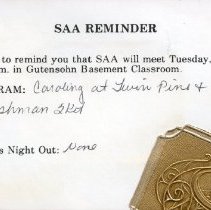 SAA REMINDER
to remind you that SAA will meet Tuesday,
m. in Gutensohn Basement Classroom.
RAM: Caroling at Twin Pines &
shman Rd
s Night Out: None